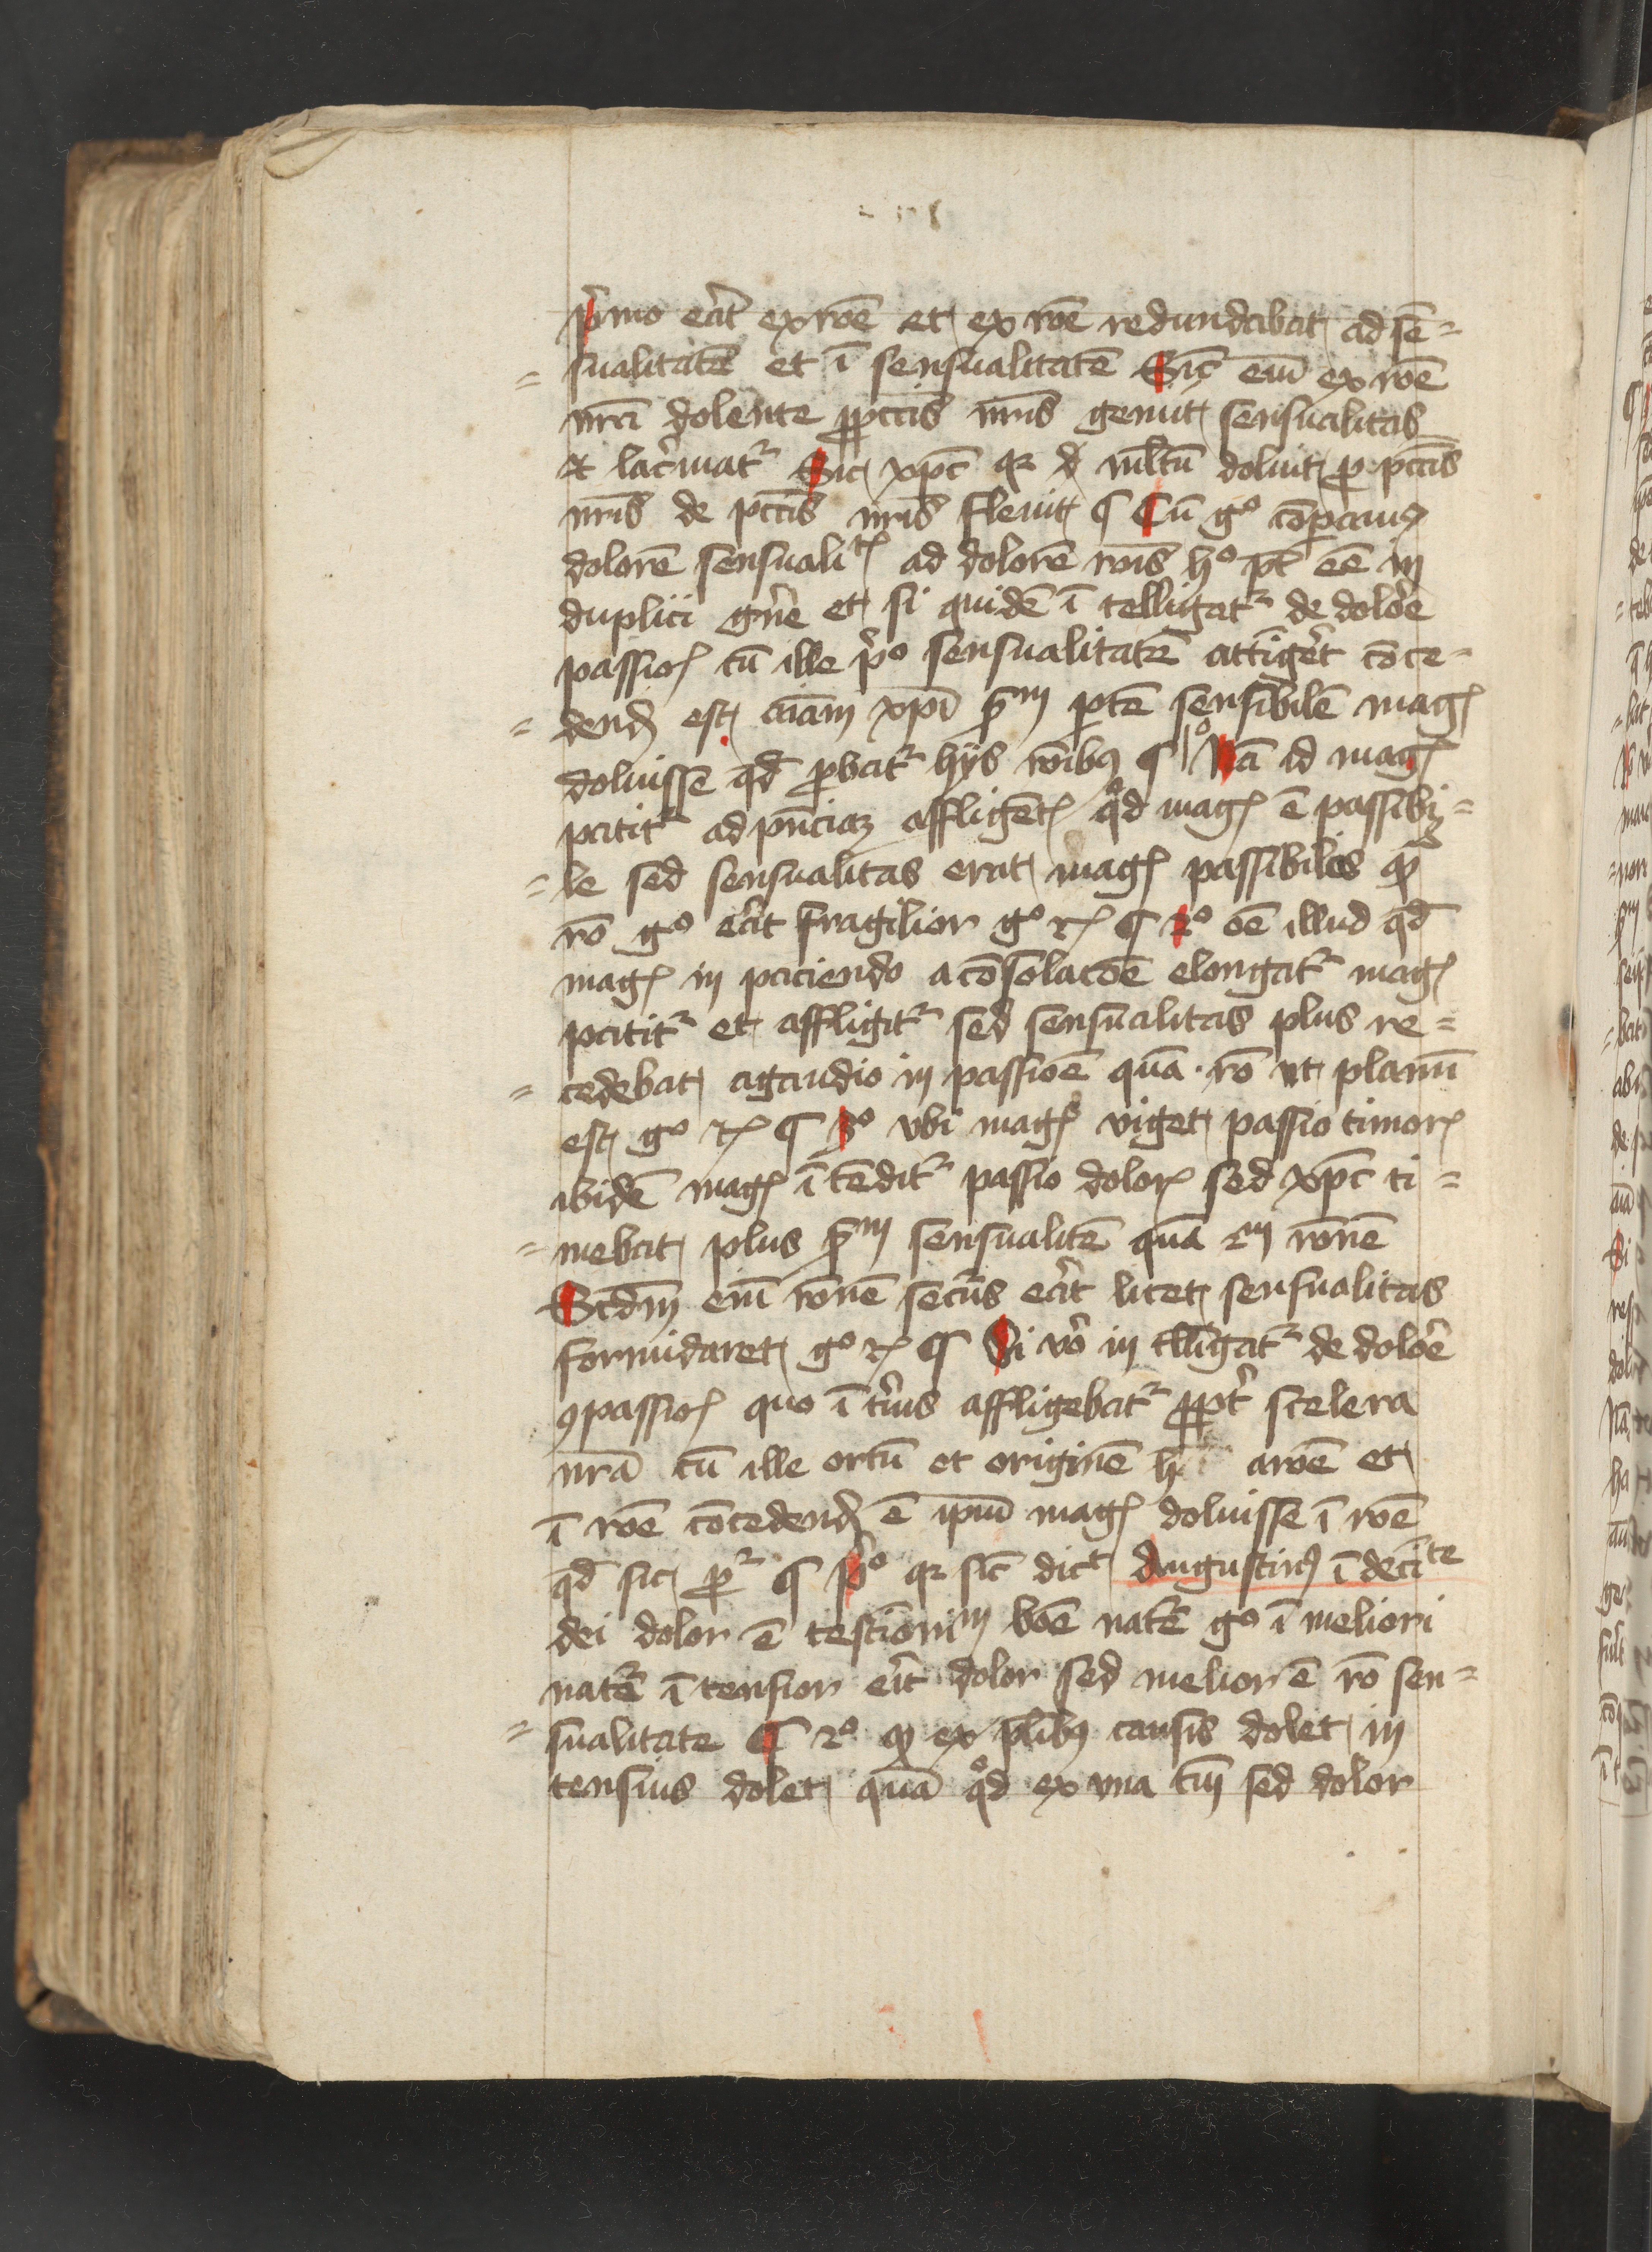 p̾mo eāt ex rōe et ex rōe redundabat ad sē=
=sualitatē et ī sensualitatē Sic̄ eīm ex rōe
nrā dolente ꝓpctīs nrīs gemit sensualitas
et lac̾matᷣ Sic xpc̄ qꝛ mltū doluit ꝓ pctīs
nrīs de pctīs nrīs fleuit ¶ Cū gͦ cōpamꝰ
dolorē sensualitꝭ ad dolorē rōis hͦ pt̄ eē in
duplici gn̄e et si quidē ī telligatᷣ de dolōe
passioꝭ cū ille pͦ sensualitatē attīgeret cōce=
=dendꝭ est aīam xpī ẜm ptē sensibilē magꝭ
doluisse qd̄ ꝓbatᷣ hijs rōibꝰ ¶ Nā id magꝭ
patitᷣ ad pn̄ciaꝫ affligētꝭ qͦd magꝭ ē passibi=
=le sed sensualitas erat magꝭ passibilis qͣꝫ
rō gͦ eāt fragilior gͦ ⁊ꝭ ¶ 2ͦ oē illud qd̄
magꝭ in paciendo a cōsolacōe elongatᷣ magꝭ
patitᷣ et affligitᷣ sed sensualitas plus re=
=cedebat a gaudio in passiōe quā rō ut planū
est gͦ ⁊ꝭ ¶ 3ͦ vbi magꝭ viget passio timorꝭ
ibidē magꝭ ī tēditᷣ passio dolorꝭ sed xpc̄ ti=
=mebat plus ẜm sensualitē quā ẜm rōnē
Scd̄m eīm rōnē securꝰ eāt licet sensualitas
formidaret gͦ ⁊ꝭ ¶ Si vo in tlligatᷣ de dolōe
ꝯpassioꝭ quo ī tīus affligebatᷣ ꝓpt̾ scelera
nrā cū ille ortū et originē h a rōe et
ī rōe cōcedendꝭ ē ipm̄ magꝭ doluisse ī rōe
qd̄ sic pᷣ ¶ pͦ qꝛ sic̄ dict Augustinꝰ ī de ciᵗᵉ
dei dolor ē testioniᵐ boē natē gͦ ī meliori
natē ī tensior eīt dolor sed melior ē rō sen=
=sualitate ¶ 2ͦ qꝫ ex pl̄ibꝰ causis dolet in
tensius dolet quā qͦd ex vna tm̄ sed dolor